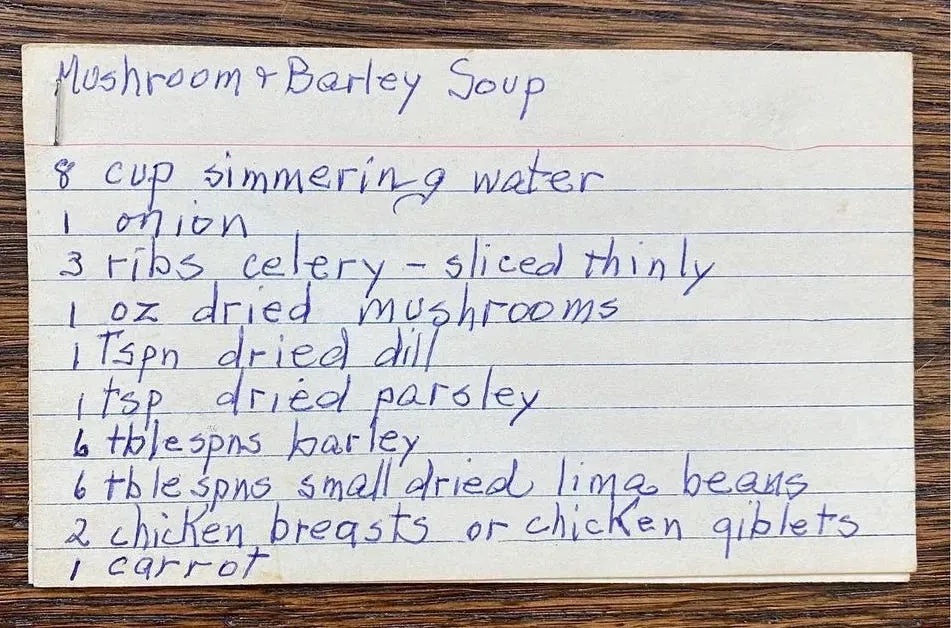 Mushroom & Barley Soup
8 cup simmering water
1 onion
3 ribs celery - sliced thinly
1 oz dried mushrooms
1 Tspn dried dill
1 tsp dried parsley
6 tblespns barley
6 tblespns small dried lima beans
2 chicken breasts or chicken giblets
1 carrot